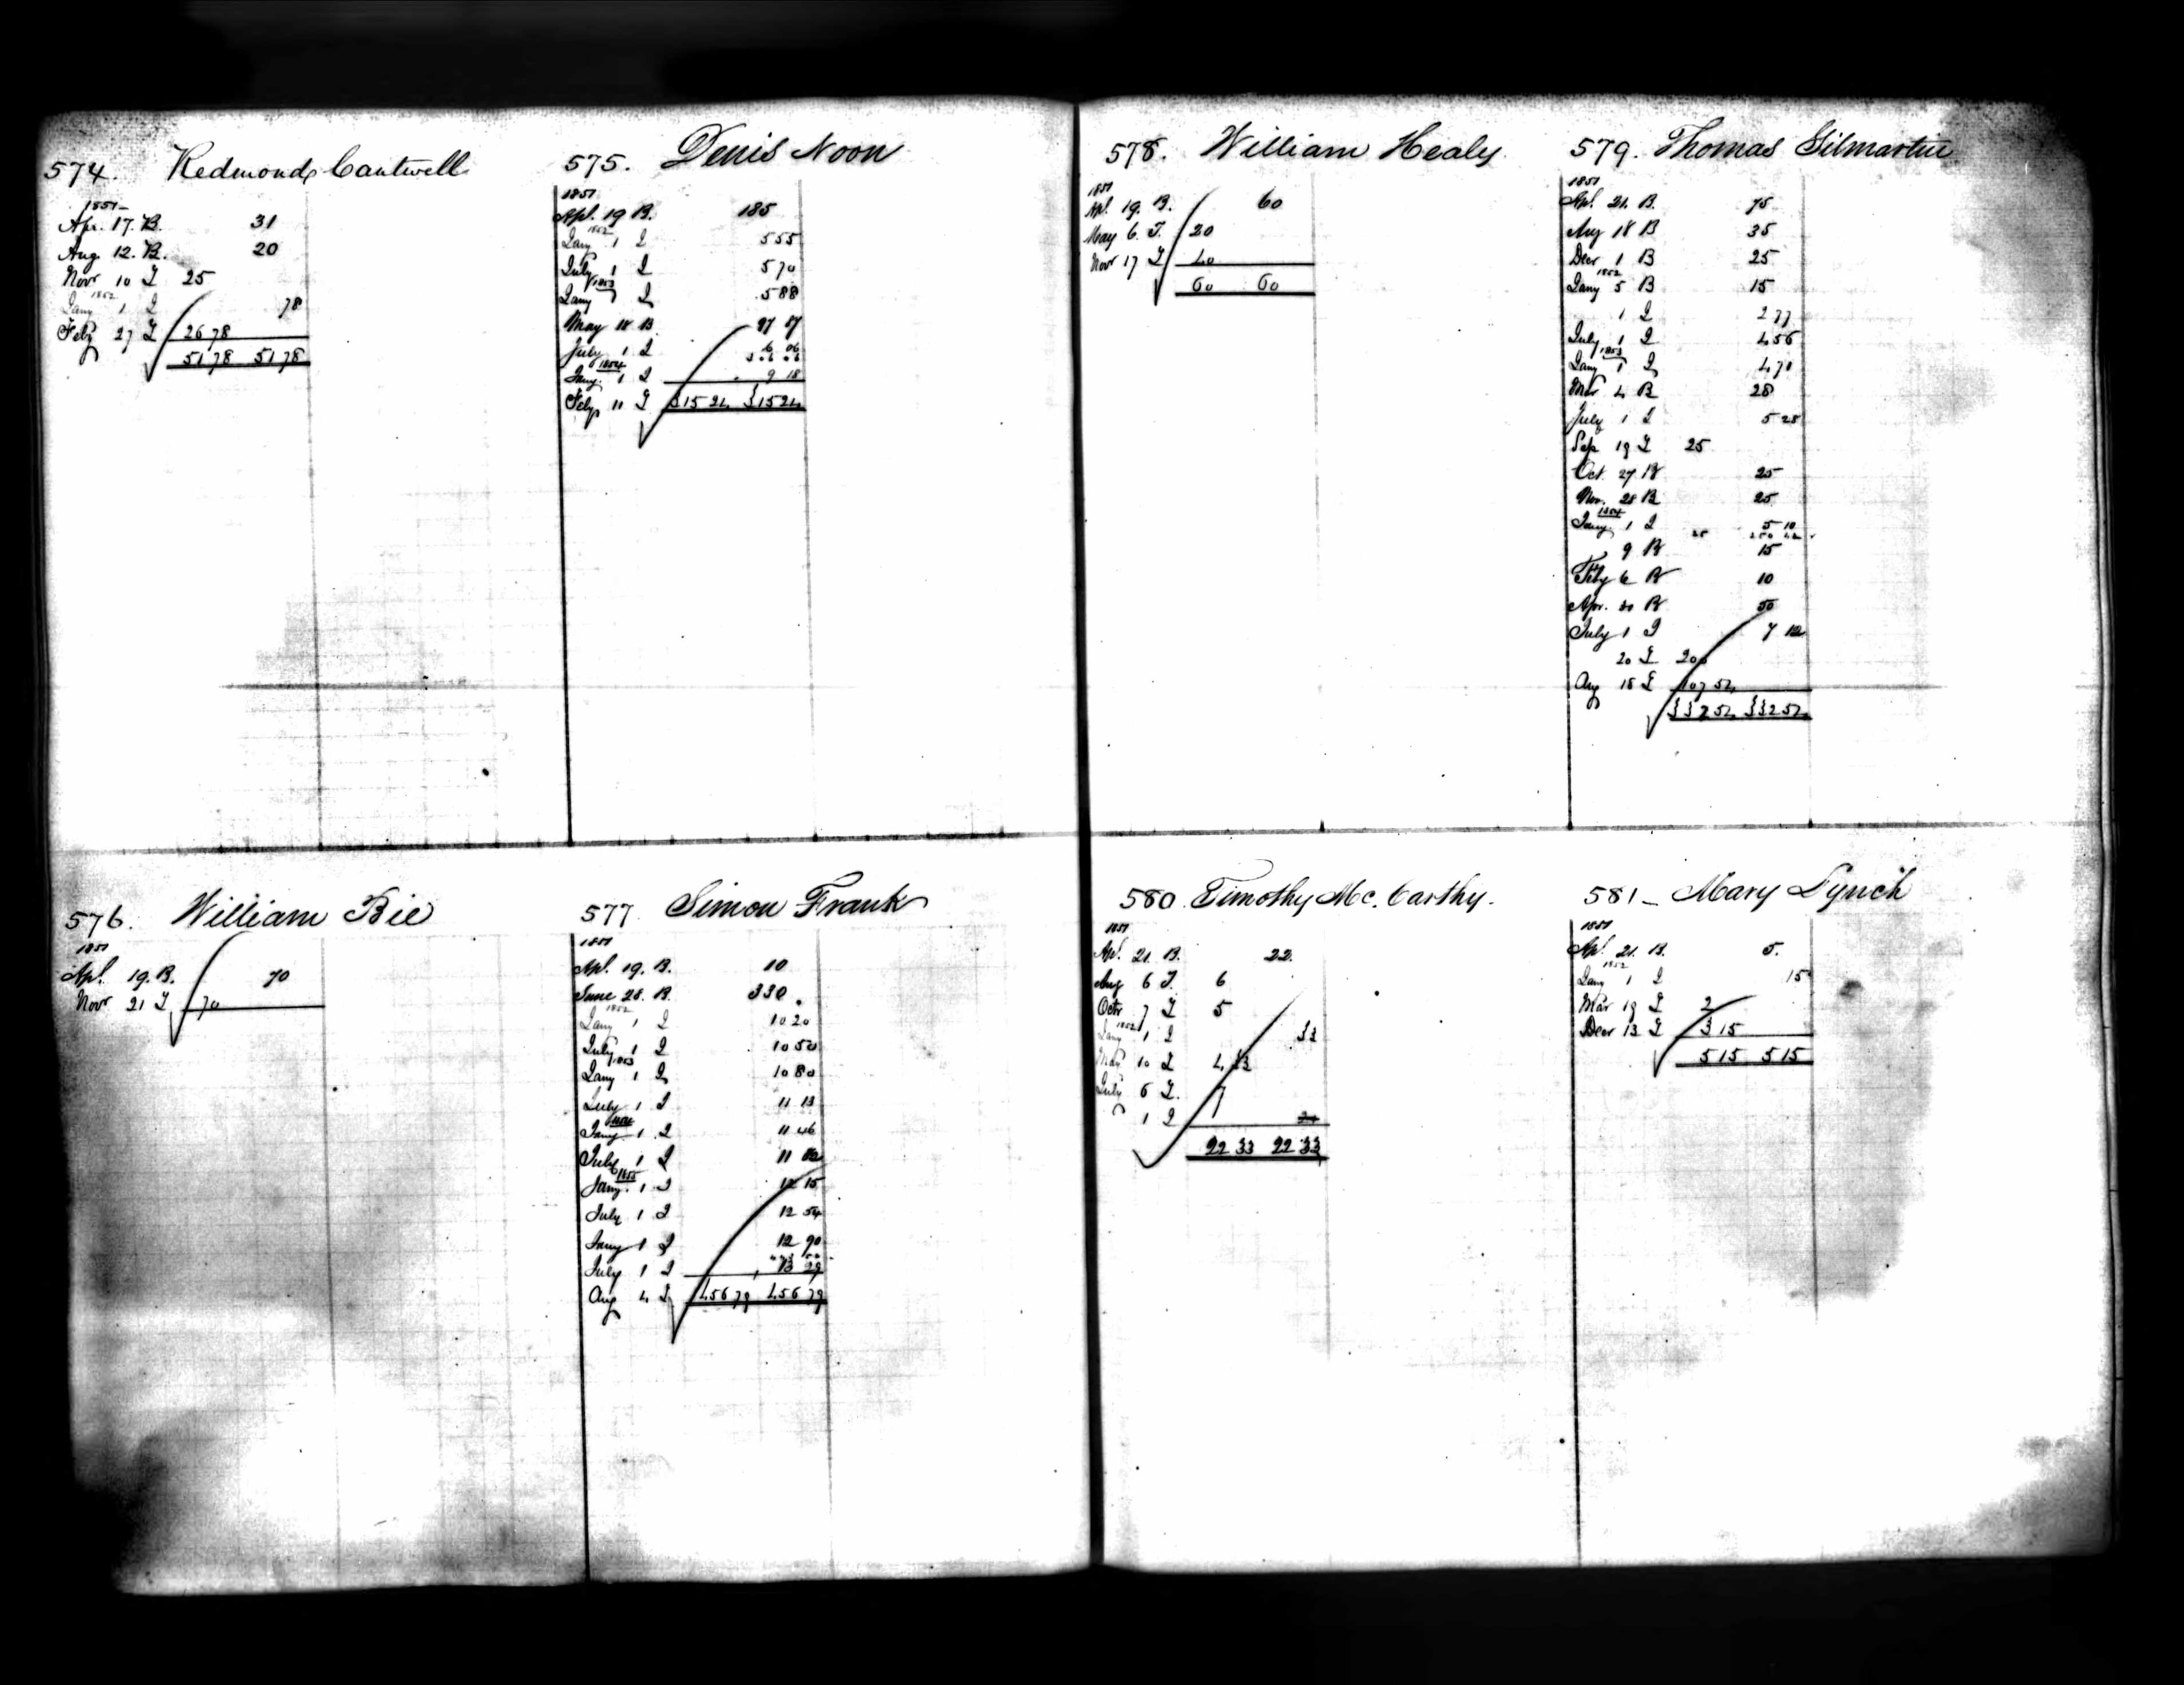 574. Redmond Cantwell
1851
Apr. 17. B. 31
Aug. 12. B. 20
Novr 10 T 25
1852
Jany 1 I 78
Feby 27 T 26 78
51 78 51 78
575. Denis Noon
1851
Apl. 19 B. 185
1852
Jany 1 I 5 55
July 1 I 5 70
1853
Jany 1 I 5 88
May 18 B 97 87
July 1 I 6 06
1854
Jany. 1 I 9 18
Feby 11 T 315 24 315 24
576. William Bie
1851
Apl. 19. B. 70
Novr 21 T 70
577 Simon Frank
1851
Apl. 19. B. 10
June 28. B. 330
1852
Jany 1 I 10 20
July 1 I 10 50
1853
Jany 1 I 10 80
July 1 I 11 13
1854
Jany 1 I 11 46
July 1 I 11 82
1855
Jany. 1 I 12 15
July 1 I 12 54
Jany 1 I 12 90
July 1 I 13 29
Aug 4 T 456 79 456 79
578. William Healy
1851
Apl. 19. B. 60
May 6. T. 20
Novr 17 T 40
60 60
579. Thomas Gilmartin
1851
Apl. 21. B. 75
Aug 18 B 35
Decr 1 B 25
1852
Jany 5 B 15
1 I 2 77
July 1 I 4 56
1853
Jany 1 I 4 71
Mar 4 B 28
July 1 I 5 28
Sep 19 T 25
Oct. 27 B 25
Nov. 28 B 25
1854
Jany 1 I 5 10
9 B 15
Feby 6 B 10
Apr. 20 B 50
July 1 I 7 12
20 T 200
Aug 18 T 107 54
332 54 332 54
580. Timothy Mc. Carthy.
1851
Apl. 21. B. 22.
Aug 6 T. 6
Octr 7 T 5
1852
Jany 1 I 33
Mar 10 T 4 33
July 6 T. 7
1 I
22 33 22 33
581 - Mary Lynch
1851
Apl. 21. B. 5.
1852
Jany 1 I 15
Mar 19 T 2
Decr 13 T 3 15
5 15 5 15